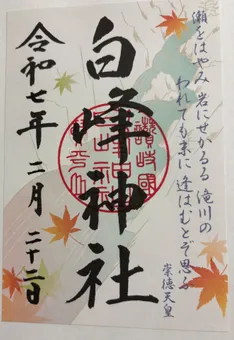 瀬をはやみ 岩にせかるる 滝川の
われても末に 逢はむとぞ思ふ
崇徳天皇
白峰神社
令和七年 二月 二十二日
讃岐國